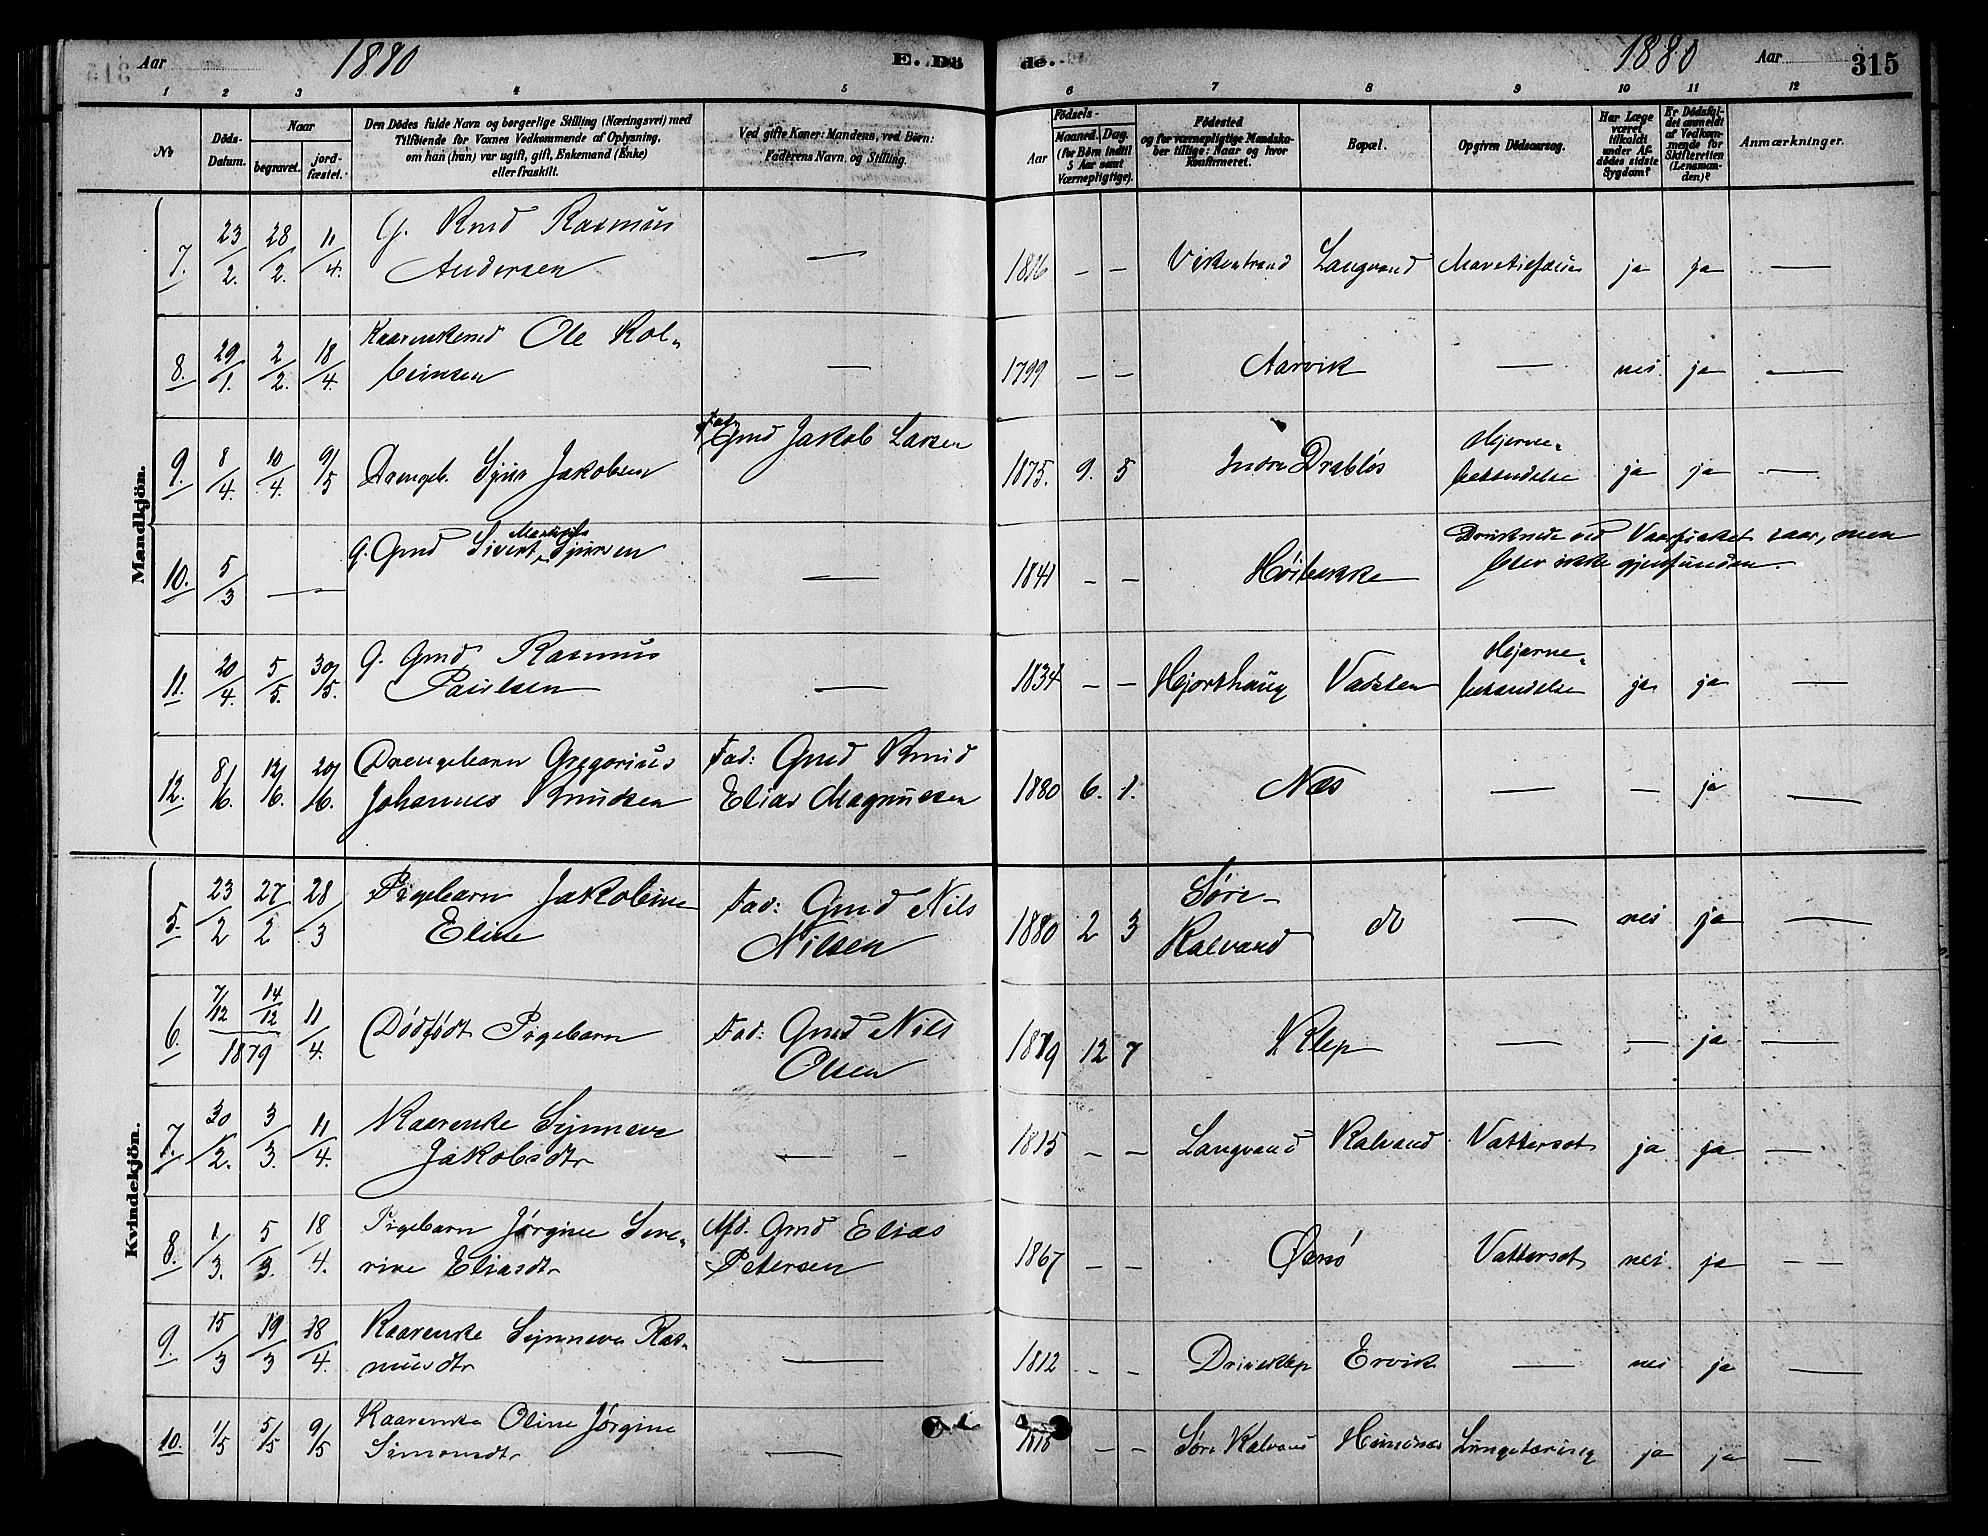 Aar 1880 E. Dö
de. 1880 Aar 315
1 2 3 4 5 6 7 8 9 10 11 12
No
Döds-
Datum.
Naar
begravet.
jord-
fæstet.
Den Dödes fulde Navn og borgerlige Stilling (Næringsvei) med
Tilföiende for Voxnes Vedkommende af Oplysning,
om han (hun) var ugift, gift, Enkemand (Enke)
eller fraskilt.
Ved gifte Koner: Mandens, ved Börn:
Faderens Navn og Stilling.
Födsels-
Aar
Maaned. Dag.
(for Börn indtil
5 Aar samt
Værnepligtige).
Födested
og for værnepligtige Mandska-
ber tillige: Naar og hvor
Konfirmeret.
Bopæl.
Opgiven Dödsaarsag.
Har Læge
været
tilkaldt
under Af-
dödes sidste
Sygdom?
Er Dödsfal-
det anmeldt
af Vedkom-
mende for
Skifteretten
(Lensman-
den)?
Anmærkninger.
Mandkjön.
7. 23/2. 28/2. 11/4. G. Rasmus
Andersen — – – Langvand ja ja —
8. 29/1. 2/2. 18/4. Ole Kol-
beinsen — 1799 – – Aarvik — nei ja —
9. 8/4. 10/4. 9/5 Drengeb. Sjur Jakobsen Gmd Jakob Larsen 1875. 9. 5 Indre Drabløs Hjerne-
betændelse ja ja —
10. 5/3 — G. Gmd Sivert Martinus Sjursen — 1841 – – Høibakke Druknede ved Vaarfisket iaar, men
blev ikke gjenfunden
11. 20/4. 5/5. 30/5. G. Gmd Rasmus
Paulsen — 1834 – – Hjorthaug Vadsten Hjerne-
betændelse ja ja —
12. 8/6. 12/6. 20/6. Drengebarn Gregorius
Johannes Knudsen Fad: Gmd Knud
Elias Magnussen 1880 6. 1. Næs — – ja —
Kvindekjön.
5. 23/2 27/2 28/3 Pigebarn Jakobine
Eline Fad: Gmd Nils
Nilsen 1880 2 3 Søre-
Kalvand do — nei ja —
6. 7/12 14/12 1879 11/4. Dødfødt Pigebarn Fad: Gmd Nils
Olsen 1879 12 7 Klep — – ja —
7. 30/2. 3/3. 11/4. Kaarenke Synneva
Jakobsdtr — 1815 – – Langvand Kalvand Vattersot ja ja —
8. 1/3. 5/3. 18/4. Pigebarn Jørgine Seve-
rine Eliasdtr Afd. Gmd Elias
Petersen 1867 – – Vattersot nei ja – –
9. 15/3 19/3 18/4 Kaarenke Synneva Ras-
musdtr — 1812 – – Ervik — nei ja —
10. 1/5 5/5 9/5 Kaarenke Oline Jørgine
Simonsdtr — – – Søre Kalvand Lungetæring ja ja —